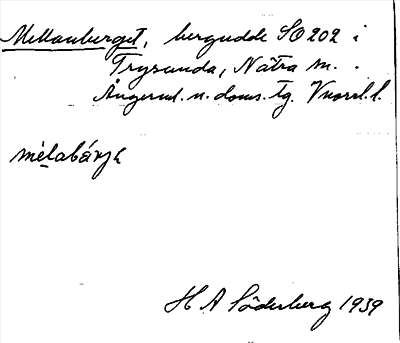 Mellanberget, bergudde SO 202 i
Trysunda, Nätra sn.
Ångerml. n. doms. tg. Vnorrl. l.
H A Söderberg 1939